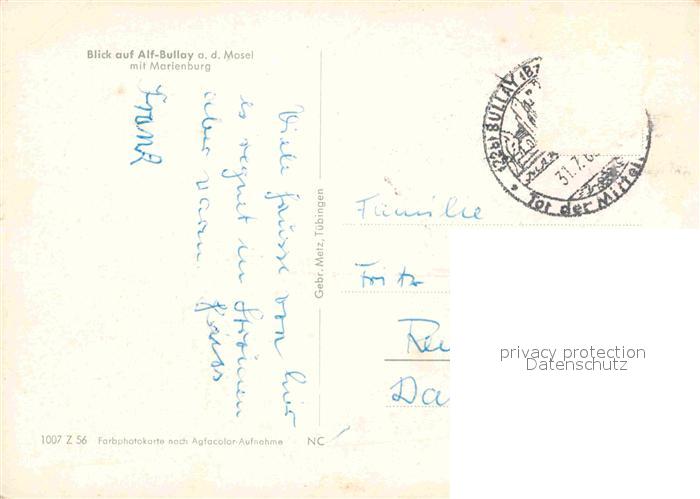 Blick auf Alf-Bullay a. d. Mosel
mit Marienburg
Viele Grüsse von hier
es regnet in Strömen
aber warm. Gruss
Franz
1007 Z 56 Farbphotokarte nach Agfacolor-Aufnahme NC
Gebr. Metz, Tübingen
BULLAY
31.7.6
Tor der Mittel
Familie
Fritz
Re
Da
privacy protection
Datenschutz